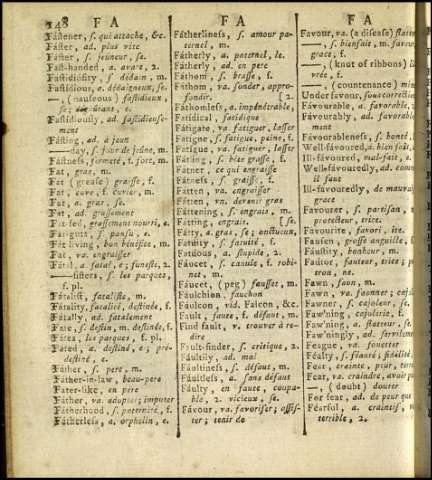 148 F A
Fástener, s. qui attache, &c.
Fáster, ad. plus vite
Faster, s. jeûneur, se.
Fast-handed, a. avare, 2.
Fastidiósity, s. dédain, m.
Fastidious, a. dédaigneux, se.
—, (nauseous) fastidieux,
se;
Fastidiously, ad. fastidieuse-
ment
Fásting, ad. à jeun
—day, s. jour de jeûne, m.
Fástness, fermeté, f. fort, m.
Fat, gras, m.
Fat (grease) graisse, f.
Fat, cuve, f. cuvier, m.
Fat, a. gras, se.
Fat, ad. grassement
Fat-fed, grassement nourri, e.
Fat-guts, s. pansu, e.
Fat living, bon bénéfice, m.
Fat, va. engraisser
Fátal, a. fatal, e; funeste, 2.
—sisters, s. les parques,
f. pl.
Fátalist, fataliste, m.
Fatálity, fatalité, destinée, f.
Fátally, ad. fatalement
Fate, s. destin, m. destinée, f.
Fates, les parques, f. pl.
Fated, a. destiné, e; pré-
destiné, e.
Fáther, s. pere, m.
Fáther-in-law, beau-pere
Fáter-like, en pere
Fáther, va. adopter; imputer
Fátherhood, s. paternité, f.
Fátherless, a. orphelin, e.
F A
Fátherliness, s. amour pa-
ternel, m.
Fátherly, a. paternel, le.
Fátherly, ad. en pere
Fáthom, s. brasse, f.
Fáthom, va. sonder, appro-
fondir. [2.
Fáthomless, a. impénétrable,
Fatídical, fatidique
Fátigate, va. fatiguer, lasser
Fatígue, s. fatigue, peine, f.
Fatígue, va. fatiguer, lasser
Fátling, s. bête grasse, f.
Fátner, ce qui engraisse
Fátness, s. graisse, f.
Fátten, va. engraisser
Fátten, vn. devenir gras
Fáttening, s. engrais, m.
Fátting, engrais. [se,
Fátty, a. gras, se; onctueux,
Fatuity, s. fatuité, f.
Fatuous, a. stupide, 2.
Fáucet, s. canule, f. robi-
net, m.
Fáucet, (peg) fausset, m.
Fáuchion, fauchon
Fáulcon, vid. Falcon, &c.
Fault, faute, f. défaut, m.
Find fault, v. trouver à re-
dire
Fault-finder, s. critique, 2.
Fáultily, ad. mal
Fáultiness, s. défaut, m.
Fáultless, a. sans défaut
Fáulty, en faute, coupa-
ble, 2. vicieux, se.
Fávour, va. favoriser; assis-
ter; tenir de
F A
Favour, va. (a disease)
—, s. bienfait, m. faveur,
grace, f.
—, (knot of ribbons)
vrée, f.
—, (countenance)
Under favour, sous correction
Fávourable, a. favorable,
Fávourably, ad. favorable-
ment
Fávourableness, s. bonté, f.
Well-fávoured, a. bien fait,
Ill-fávoured, mal-fait, e.
Well-fávouredly, ad. comme
il faut
Ill-fávouredly, de mauvaise
grace
Fávourer, s. partisan,
protecteur, trice.
Fávourite, favori, ite.
Fausen, grosse anguille, f.
Fáusity, bonheur, m.
Fautor, fauteur, trice; pa-
tron, ne.
Fawn, faon, m.
Fawn, va. faonner;
Fawner, s. cajoleur, se.
Faw'ning, cajolerie, f.
Faw'ning, a. flatteur, se.
Faw'ningly, ad. servilement
Feague, va. fouetter
Féalty, s. féauté, fidélité,
Fear, crainte, peur,
Fear, va. craindre, avoir peur
—, (doubt) douter
For fear, ad. de peur que
Féarful, a. craintif,
terrible, 2.